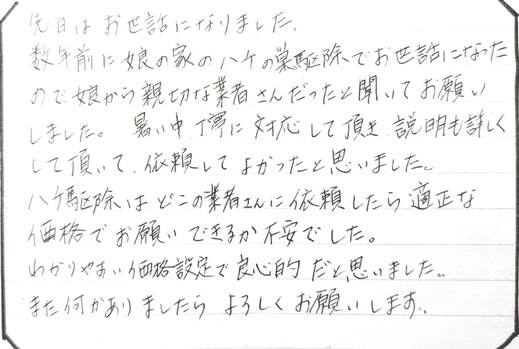 先日はお世話になりました。
数年前に娘の家のハチの巣駆除でお世話になった
ので娘から親切な業者さんだったと聞いてお願い
しました。 暑い中丁寧に対応して頂き、説明も詳しく
して頂いて、依頼してよかったと思いました。
ハチ駆除はどこの業者さんに依頼したら適正な
価格でお願いできるか不安でした。
わかりやすい価格設定で良心的だと思いました。
また何かありましたらよろしくお願いします。